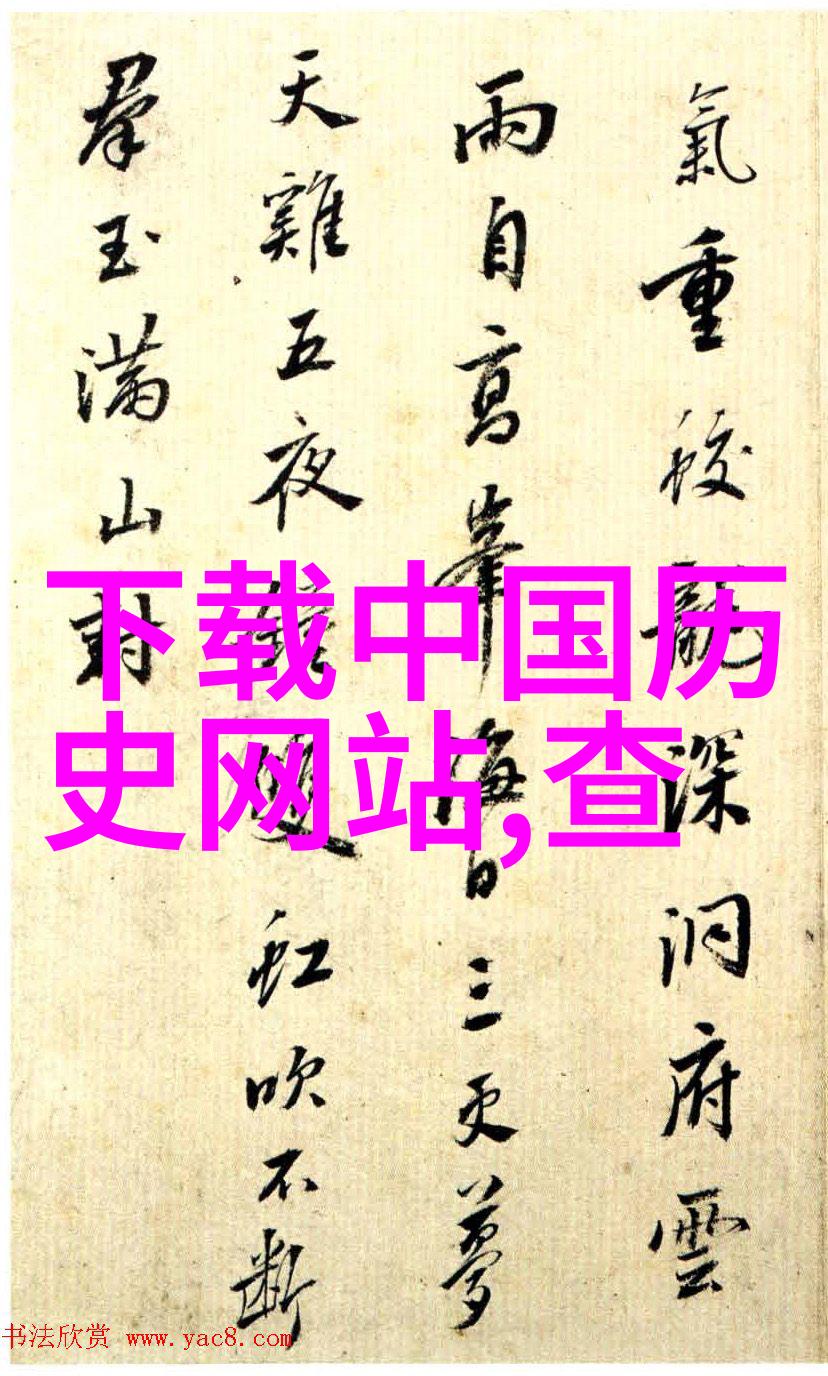 氣重蛟龍深洞府雲
雨自高峯海日三更夢
天雞五夜鐘雙虹吹不斷
羣玉滿山對
下载中国历
史网站,查
书法欣赏 www.yac8.com